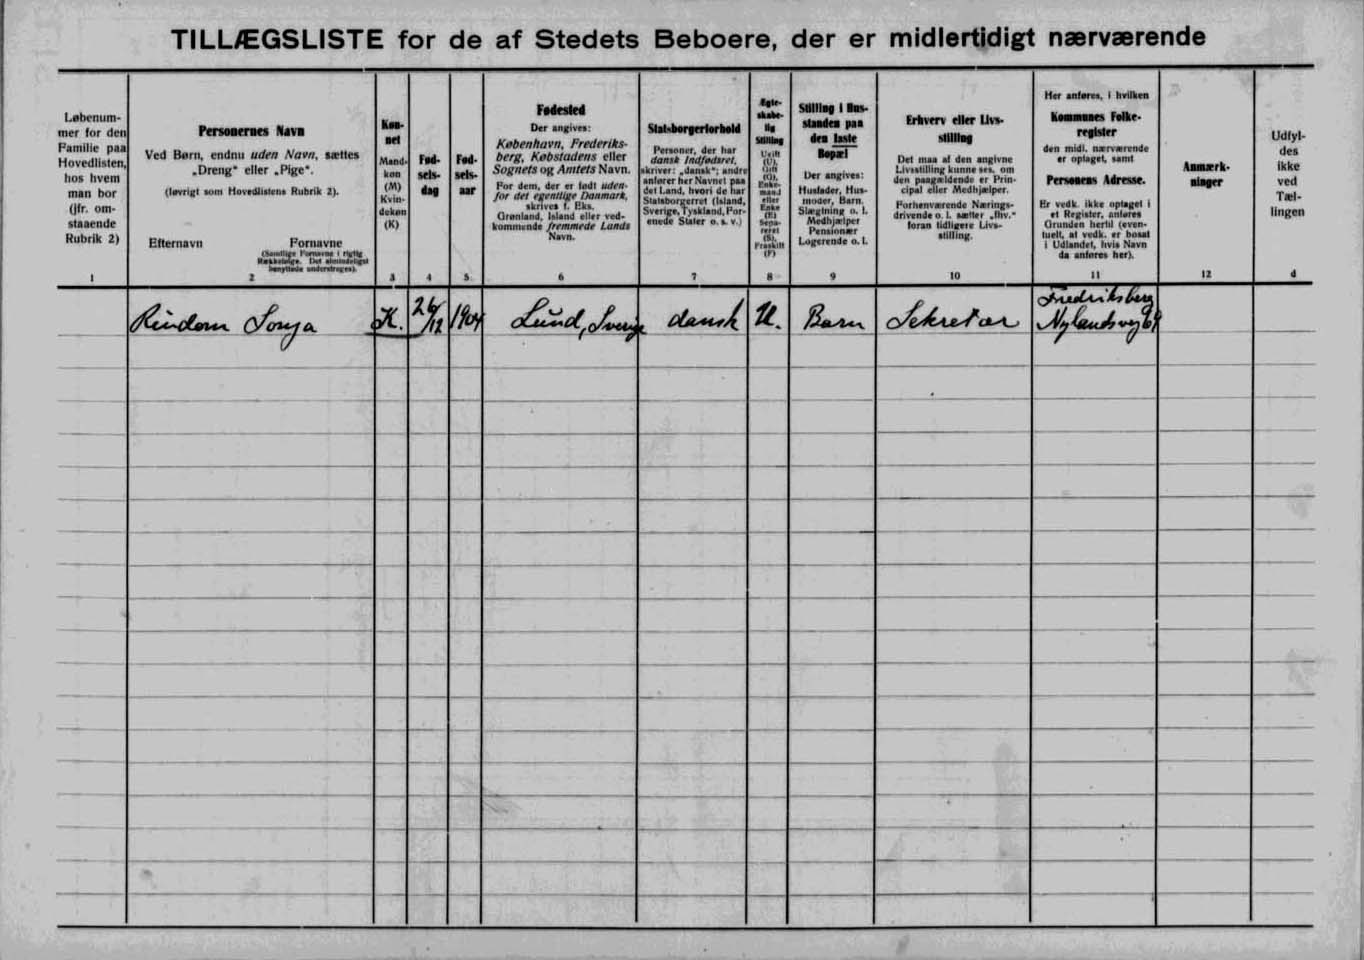 TILLÆGSLISTE for de af Stedets Beboere, der er midlertidigt nærværende
Løbenum-
mer for den
Familie paa
Hovedlisten,
hos hvem
man bor
(jfr. om-
staaende
Rubrik 2)
1
Personernes Navn
Ved Børn, endnu uden Navn, sættes
„Dreng" eller „Pige".
(Iøvrigt som Hovedlistens Rubrik 2).
Efternavn Fornavne
(Samtlige Fornavne i rigtig
Rækkefølge. Det almindeligst
benyttede understreges).
2
Køn-
net
Mand-
køn
(M)
Kvin-
dekøn
(K)
3
Fød-
sels-
dag
4
Fød-
sels-
aar
5
Fødested
Der angives:
København, Frederiks-
berg, Købstadens eller
Sognets og Amtets Navn.
For dem, der er født uden-
for det egentlige Danmark,
skrives f. Eks.
Grønland, Island eller ved-
kommende fremmede Lands
Navn.
6
Statsborgerforhold
Personer, der har
dansk Indfødsret,
skriver: „dansk"; andre
anfører her Navnet paa
det Land, hvori de har
Statsborgerret (Island,
Sverige, Tyskland, For-
enede Stater o. s. v.)
7
Ægte-
skabe-
lig
Stilling
Ugift
(U),
Gift
(G),
Enke-
mand
eller
Enke
(E)
Sepa-
reret
(S),
Fraskilt
(F)
8
Stilling i Hus-
standen paa
den faste
Bopæl
Der angives:
Husfader, Hus-
moder, Barn,
Slægtning o. l.
Medhjælper
Pensionær
Logerende o. l.
9
Erhverv eller Livs-
stilling
Det maa af den angivne
Livsstilling kunne ses, om
den paagældende er Prin-
cipal eller Medhjælper.
Forhenværende Nærings-
drivende o. l. sætter „fhv."
foran tidligere Livs-
stilling.
10
Her anføres, i hvilken
Kommunes Folke-
register
den midl. nærværende
er optaget, samt
Personens Adresse.
Er vedk. ikke optaget i
et Register, anføres
Grunden hertil (even-
tuelt, at vedk. er bosat
i Udlandet, hvis Navn
da anføres her).
11
Anmærk-
ninger
12
Udfyl-
des
ikke
ved
Tæl-
lingen
d
Rindom Sonja K. 26/12 1904 Lund, Sverige dansk U. Barn Sekretær Fredriksberg
Nylandsvej 69